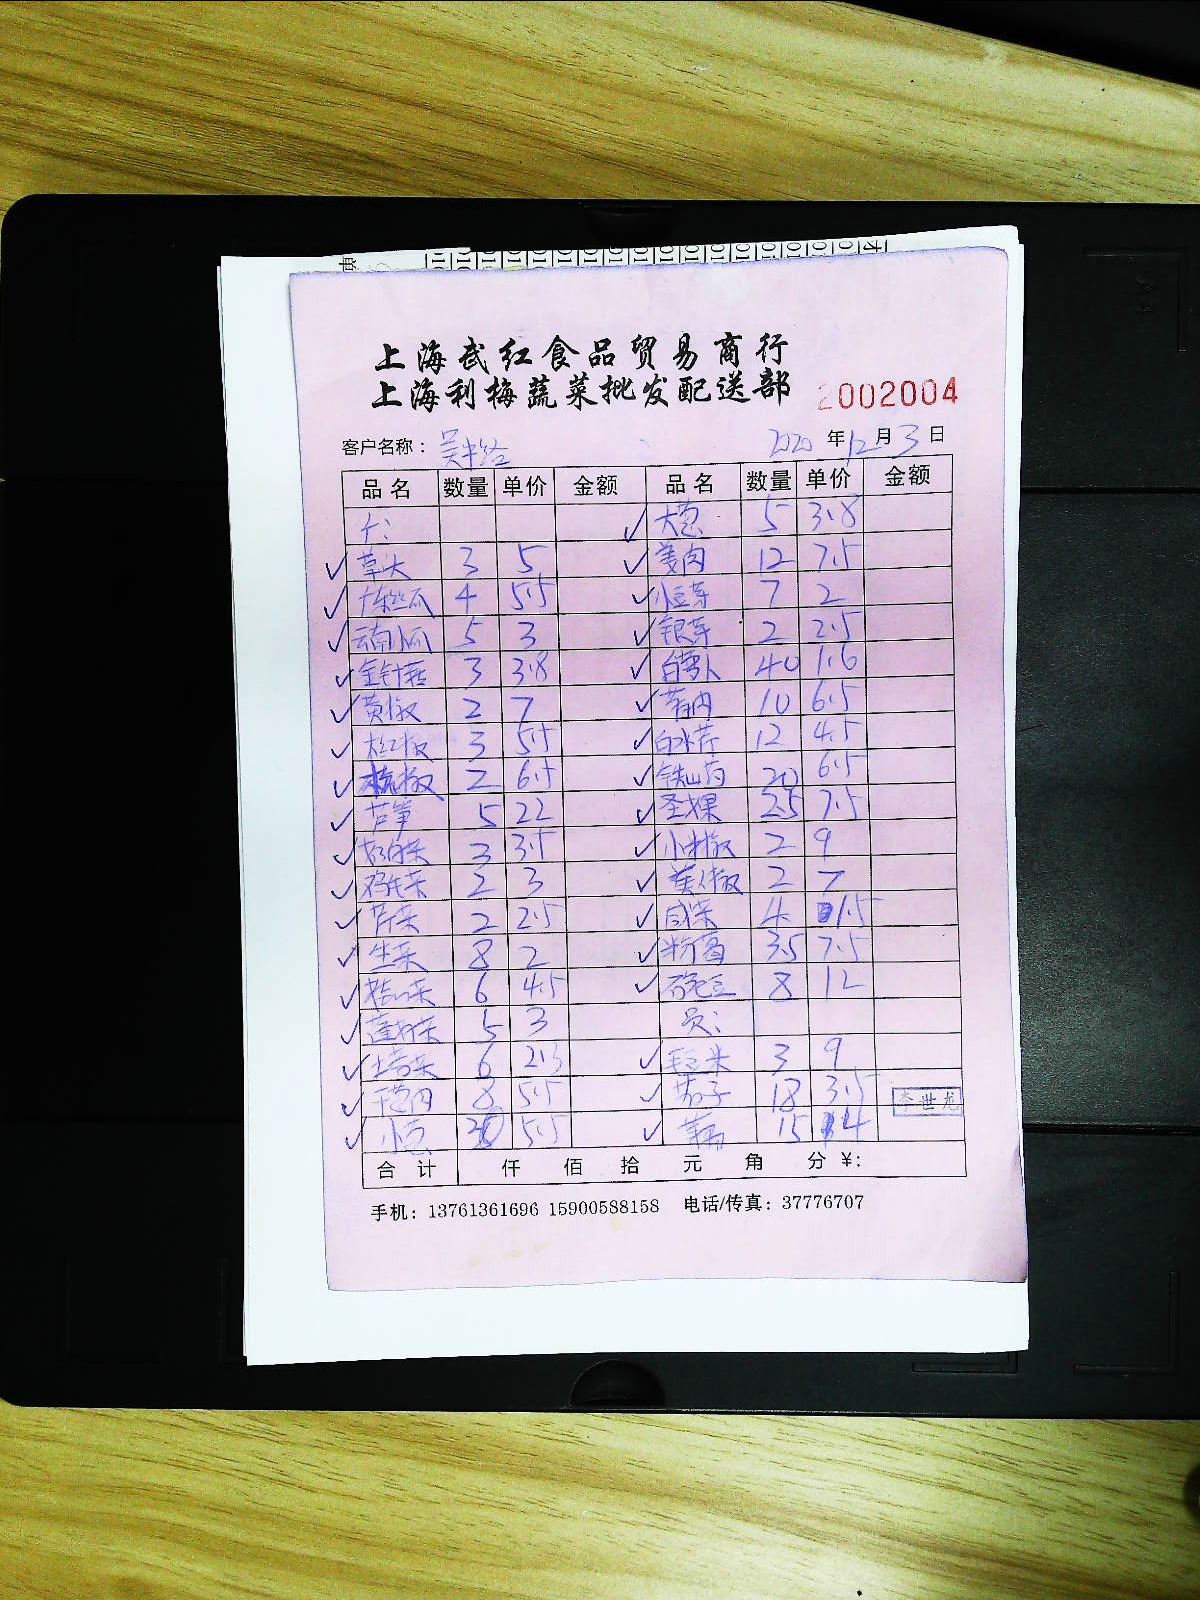 上海武红食品贸易商行
上海利梅蔬菜批发配送部 2002004
客户名称： 2020 年 12 月 3 日
品名 数量 单价 金额 品名 数量 单价 金额
大葱 5 3.8
草头 3 5 姜肉 12 7.5
广东丝瓜 4 5.5 小豆芽 7 2
云南小瓜 5 3 银芽 2 2.5
金针菇 3 3.8 白萝卜 40 1.6
黄椒 2 7 莴肉 10 6.5
大红椒 3 5.5 白水芹 12 4.5
杭椒 2 6.5 铁山药 20 6.5
芦笋 5 22 圣女果 2.5 7.5
奶白菜 3 3.5 小米椒 2 9
鸡毛菜 2 3 美人椒 2 7
芹菜 2 2.5 咸菜 4 1.5
生菜 8 2 粉葛 3.5 7.5
6 4.5 8 12
蓬蒿菜 5 3 员：
塔菜 6 2.3 毛豆米 3 9
干葱肉 8 5.5 茄子 18 3.5
小葱 5.5 15 4
李世龙
合计 仟 佰 拾 元 角 分 ¥:
手机：13761361696 15900588158 电话/传真：37776707